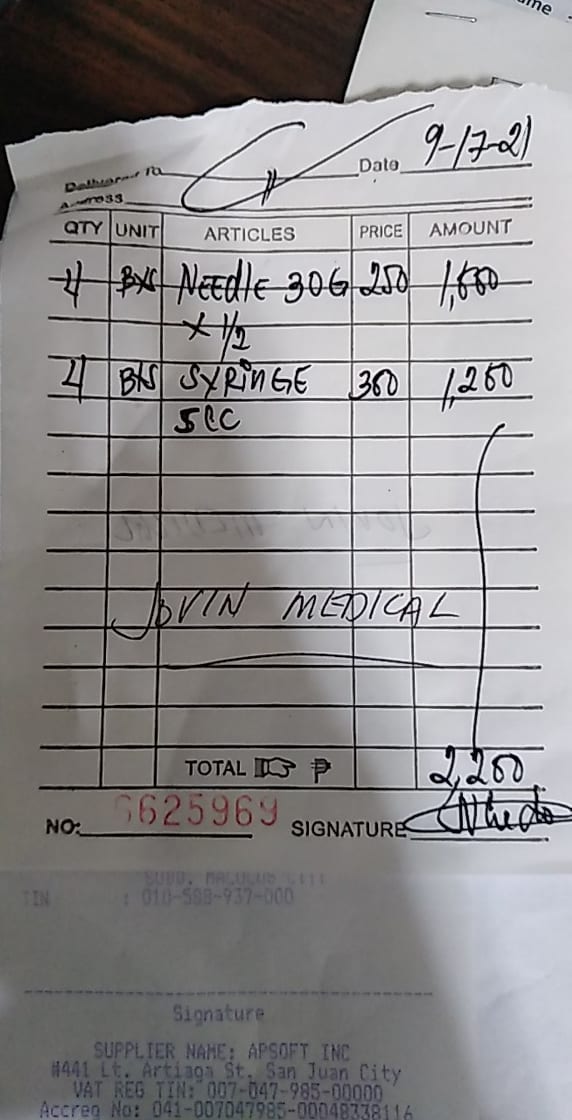 Delivered To Date 9-17-21
Address
QTY UNIT ARTICLES PRICE AMOUNT
4 BXS NEEdlE 30G 250 1,000
x 1/2
4 BXS SYRINGE 300 1,200
5CC
JOVIN MEDICAL
TOTAL ₱ 2,200
NO: 6625969 SIGNATURE
TIN : 010-588-937-000
Signature
SUPPLIER NAME: APSOFT INC
#441 Lt. Artiaga St. San Juan City
VAT REG TIN: 007-047-985-00000
Accreg No: 041-007047985-00048338116